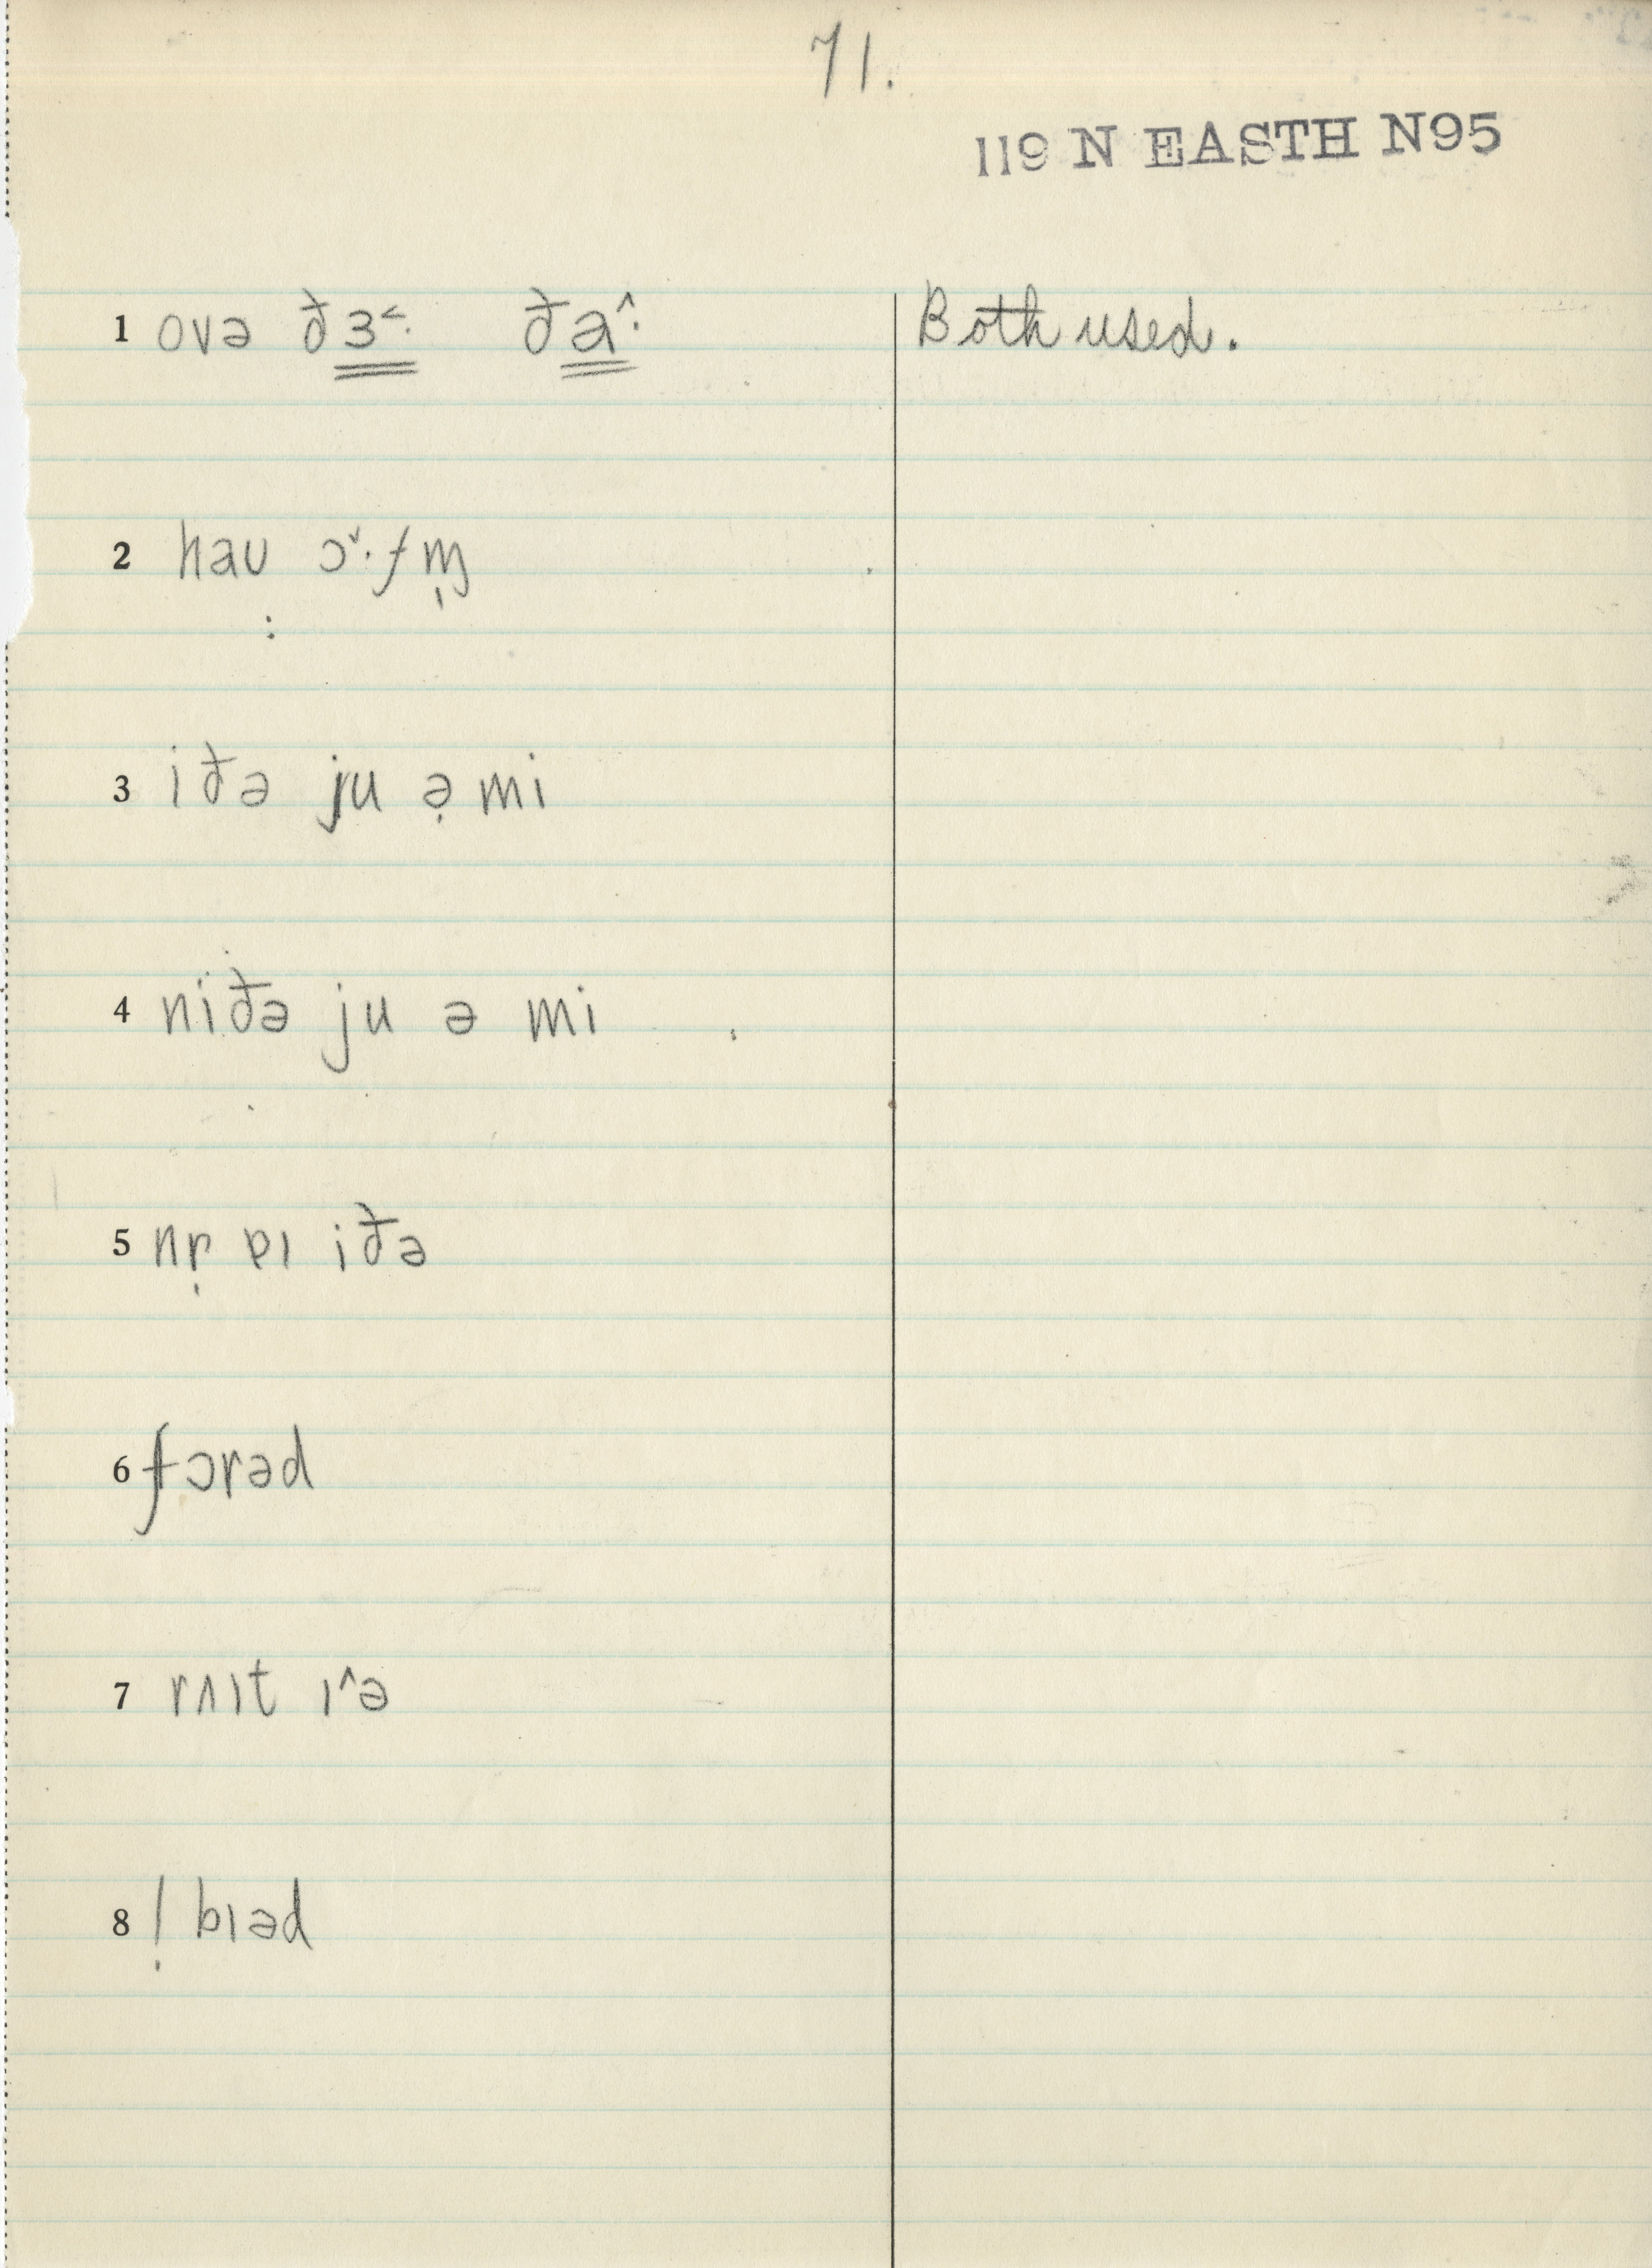 71.
119 N EASTH N95
1 ovə ðɜ˂· ða^: Both used.
2 haʋ ɔˇ·fɱ̩
3 iðə ju ə̣ mi
4 niðə ju ə mi
5 nɲ̩ ɐɪ iðə
6 fɔrəd
7 rʌɪt ɪ^ə
8 l̩ bɪəd